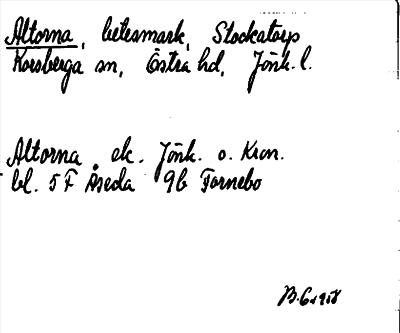 Altorna, betesmark, Stockatorp
Korsberga sn, Östra hd, Jönk. l.
Altorna, ek. Jönk. o. Kron.
bl. 5 F Åseda 9b Farnebo